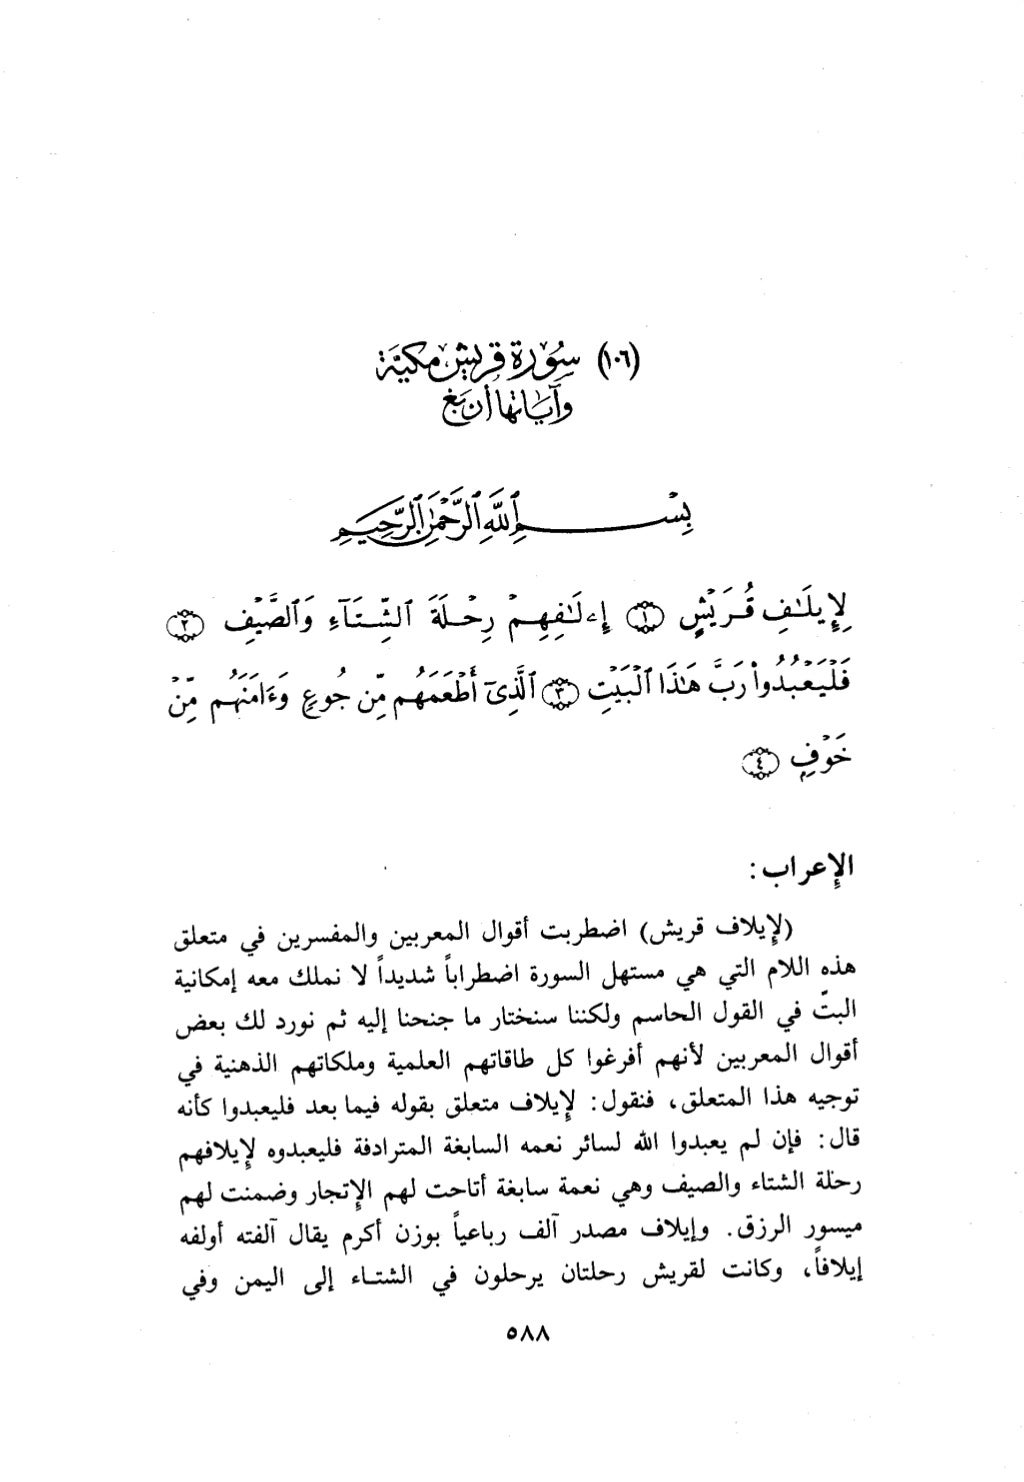 (١٠٦) سُورة قريش مكيّة
وآياتها أربع
بِسْمِ ٱللَّهِ ٱلرَّحْمَٰنِ ٱلرَّحِيمِ
لِإِيلَٰفِ قُرَيْشٍ ١ إِۦلَٰفِهِمْ رِحْلَةَ ٱلشِّتَآءِ وَٱلصَّيْفِ ٢
فَلْيَعْبُدُوا۟ رَبَّ هَٰذَا ٱلْبَيْتِ ٣ ٱلَّذِىٓ أَطْعَمَهُم مِّن جُوعٍ وَءَامَنَهُم مِّنْ
خَوْفٍ ٤
الإِعراب :
(لإِيلاف قريش) اضطربت أقوال المعربين والمفسرين في متعلق
هذه اللام التي هي مستهل السورة اضطراباً شديداً لا نملك معه إمكانية
البتّ في القول الحاسم ولكننا سنختار ما جنحنا إليه ثم نورد لك بعض
أقوال المعربين لأنهم أفرغوا كل طاقاتهم العلمية وملكاتهم الذهنية في
توجيه هذا المتعلق، فنقول: لإِيلاف متعلق بقوله فيما بعد فليعبدوا كأنه
قال: فإن لم يعبدوا الله لسائر نعمه السابغة المترادفة فليعبدوه لإِيلافهم
رحلة الشتاء والصيف وهي نعمة سابغة أتاحت لهم الإِتجار وضمنت لهم
ميسور الرزق. وإيلاف مصدر آلف رباعياً بوزن أكرم يقال آلفته أولفه
إيلافاً، وكانت لقريش رحلتان يرحلون في الشتاء إلى اليمن وفي
٥٨٨